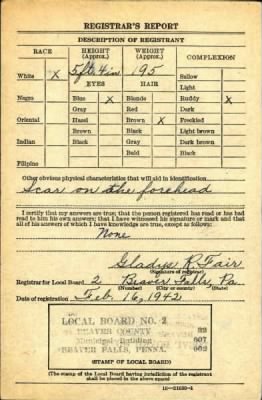 REGISTRAR'S REPORT
DESCRIPTION OF REGISTRANT
RACE HEIGHT (Approx.) WEIGHT (Approx.) COMPLEXION
White X 5 ft. 4 in. 195 Sallow
EYES HAIR Light
Negro Blue X Blonde Ruddy X
Gray Red Dark
Oriental Hazel Brown X Freckled
Brown Black Light brown
Indian Black Gray Dark brown
Bald Black
Filipino
Other obvious physical characteristics that will aid in identification
Scar on the forehead
I certify that my answers are true; that the person registered has read or has had
read to him his own answers; that I have witnessed his signature or mark and that
all of his answers of which I have knowledge are true, except as follows:
None
Gladys R. Fair
(Signature of registrar)
Registrar for Local Board 2 Beaver Falls, Pa.
(Number) (City or county) (State)
Date of registration Feb. 16, 1942
LOCAL BOARD NO. 2
BEAVER COUNTY
Municipal Building 007
BEAVER FALLS, PENNA.
(STAMP OF LOCAL BOARD)
(The stamp of the Local Board having jurisdiction of the registrant
shall be placed in the above space)